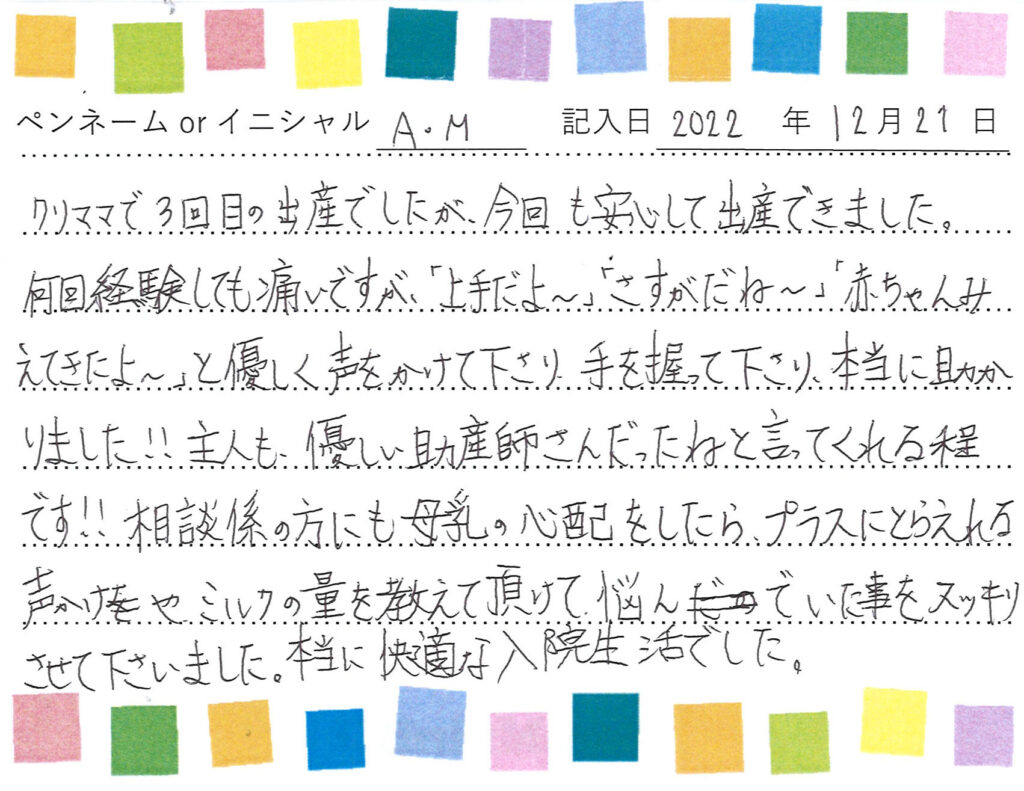 ペンネーム or イニシャル A・M 記入日 2022 年 12月21日
クリママで3回目の出産でしたが、今回も安心して出産できました。
何回経験しても痛いですが、「上手だよ～」「さすがだね～」「赤ちゃんみ
えてきたよ～」と優しく声をかけて下さり、手を握って下さり、本当に助か
りました!!主人も、優しい助産師さんだったねと言ってくれる程
です!!相談係の方にも母乳の心配をしたら、プラスにとらえれる
声かけや、ミルクの量を教えて頂けて、悩んでいた事をスッキリ
させて下さいました。本当に快適な入院生活でした。